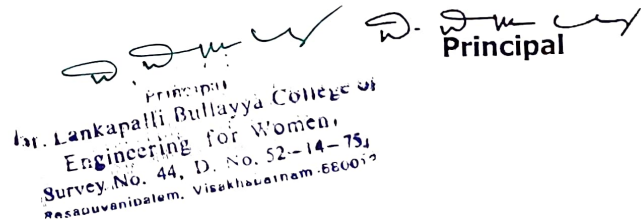 Principal
Principal
Dr. Lankapalli Bullayya College of
Engineering for Women,
Survey No. 44, D. No. 52-14-75,
Resapuvanipalem, Visakhapatnam-530013